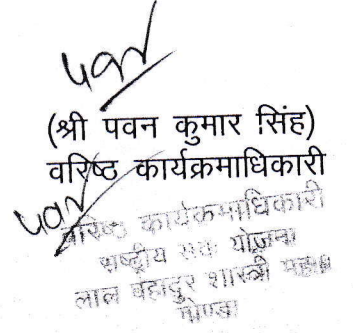 पवन
(श्री पवन कुमार सिंह)
वरिष्ठ कार्यक्रमाधिकारी
पवन
वरिष्ठ कार्यक्रमाधिकारी
राष्ट्रीय सेवा योजना
लाल बहादुर शास्त्री महा०
गोण्डा